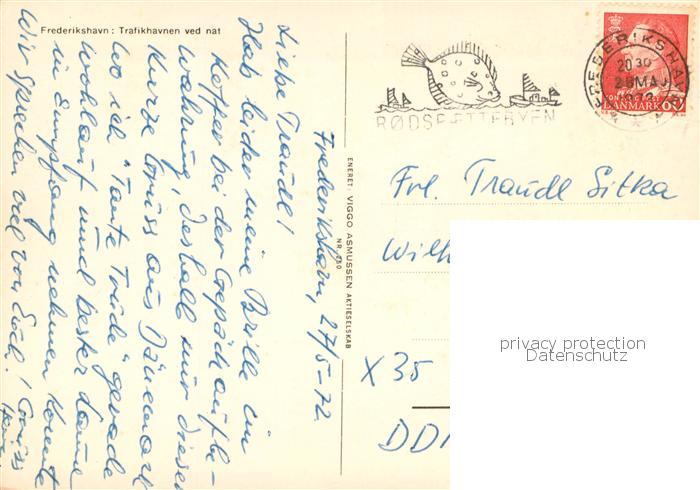 Frederikshavn: Trafikhavnen ved nat
Frederikshavn, 27/5-72
Liebe Traudl!
Hab leider meine Brille im
Koffer bei der Gepäckaufbe-
wahrung, deshalb nur diesen
kurzen Gruss aus Dänemark
wo ich "Tante Trude" gerade
wohlauf und bester Laune
in Empfang nehmen konnte
Wir sprechen viel von Euch! Gruss
ENERET: VIGGO ASMUSSEN AKTIESELSKAB
NR.
RØDSPÆTTEBYEN
FREDERIKSHAVN
20 30
28 MAJ
DANMARK 60
Frl. Traudl Sitka
Wilh
X 35
DD
privacy protection
Datenschutz